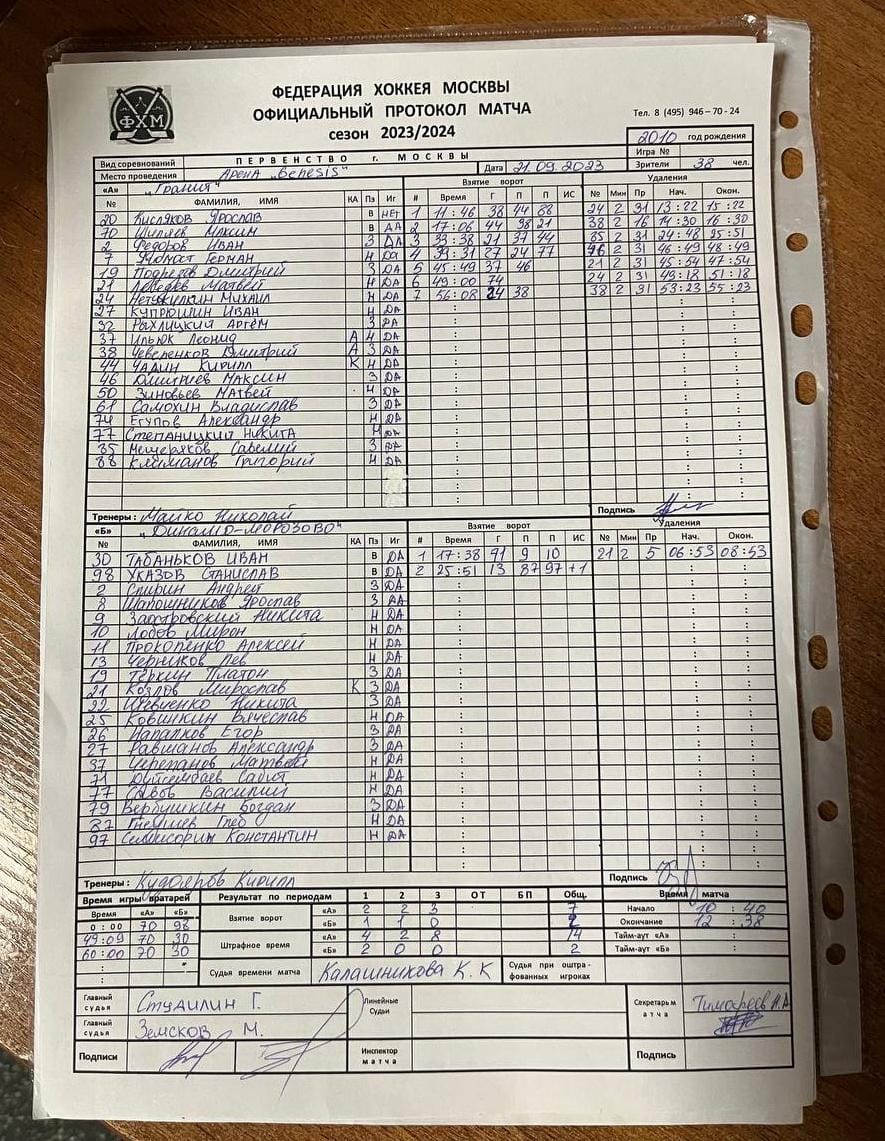 ФЕДЕРАЦИЯ ХОККЕЯ МОСКВЫ
ФХМ
ОФИЦИАЛЬНЫЙ ПРОТОКОЛ МАТЧА
Тел. 8 (495) 946 – 70 - 24
сезон 2023/2024
2010 год рождения
Вид соревнований ПЕРВЕНСТВО г. МОСКВЫ Игра №
Место проведения Арена „Genesis" Дата 21.09.2023 Зрители 38 чел.
«А» „Гранит" Взятие ворот Удаления
№ ФАМИЛИЯ, ИМЯ КА Пз Иг # Время Г П П ИС № Мин Пр Нач. Окон.
20 Кисляков Ярослав В НЕТ 1 11:46 38 44 88 24 2 31 13:22 15:22
70 Максим В ДА 2 17:06 44 38 21 38 2 16 14:30 16:30
2 Федоров Иван З ДА 3 33:38 21 37 44 85 2 31 24:48
7 Герман Н ДА 4 39:31 27 24 77 2 31 46:49 48:49
19 Подрезов Дмитрий З ДА 5 45:49 37 46 21 2 31 45:54 47:54
21 Лебедев Матвей Н ДА 6 49:00 74 24 2 31 49:18 51:18
24 Михаил Н ДА 7 56:08 24 38 38 2 31 53:23 55:23
27 Купрюшин Иван Н ДА
32 Рыхлицкий Артём З ДА
37 Ильюк Леонид А Н ДА
38 Чевеленков Дмитрий А З ДА
44 Чадин Кирилл К Н ДА
46 Дмитриев Максим З ДА
50 Зиновьев Матвей Н ДА
61 Самохин Владислав З ДА
74 Егупов Александр Н ДА
77 Степаницкий Никита Н ДА
85 Мещеряков Савелий З ДА
88 Климанов Григорий Н ДА
Тренеры: Майко Николай Подпись
«Б» „Динамо-Морозово" Взятие ворот Удаления
№ ФАМИЛИЯ, ИМЯ КА Пз Иг # Время Г П П ИС № Мин Пр Нач. Окон.
30 Табаньков Иван В ДА 1 17:38 91 9 10 21 2 5 06:53 08:53
98 Указов Станислав В ДА 2 25:51 13 87 97 +1
2 Спирин Андрей З ДА
8 Шапошников Ярослав З ДА
9 Заостровский Никита Н ДА
10 Лобов Мирон Н ДА
11 Прокопенко Алексей Н ДА
13 Черников Лев Н ДА
19 Тёркин Платон З ДА
21 Козлов Мирослав К З ДА
22 Шевченко Никита З ДА
25 Ковинкин Вячеслав Н ДА
26 Напалков Егор З ДА
27 Равшанов Александр З ДА
37 Черепанов Матвей Н ДА
71 Дуйсембаев Сабит Н ДА
77 Василий Н ДА
79 Вербушкин Богдан З ДА
87 Глеб Н ДА
97 Константин Н ДА
Тренеры: Кудояров Кирилл Подпись
Время игры вратарей Результат по периодам 1 2 3 ОТ БП Общ. Время матча
Время «А» «Б» Взятие ворот «А» 2 2 3 7 Начало 10:40
0:00 70 98 «Б» 1 1 0 2 Окончание 12:38
49:09 70 30 Штрафное время «А» 4 2 8 14 Тайм-аут «А» :
60:00 70 30 «Б» 2 0 0 2 Тайм-аут «Б» :
Судья времени матча Калашникова К.К Судья при оштрафованных игроках
Главный судья Студилин Г. Линейные Судьи Секретарь матча Тимофеев Н.А
Главный судья Земсков М.
Подписи Инспектор матча Подпись